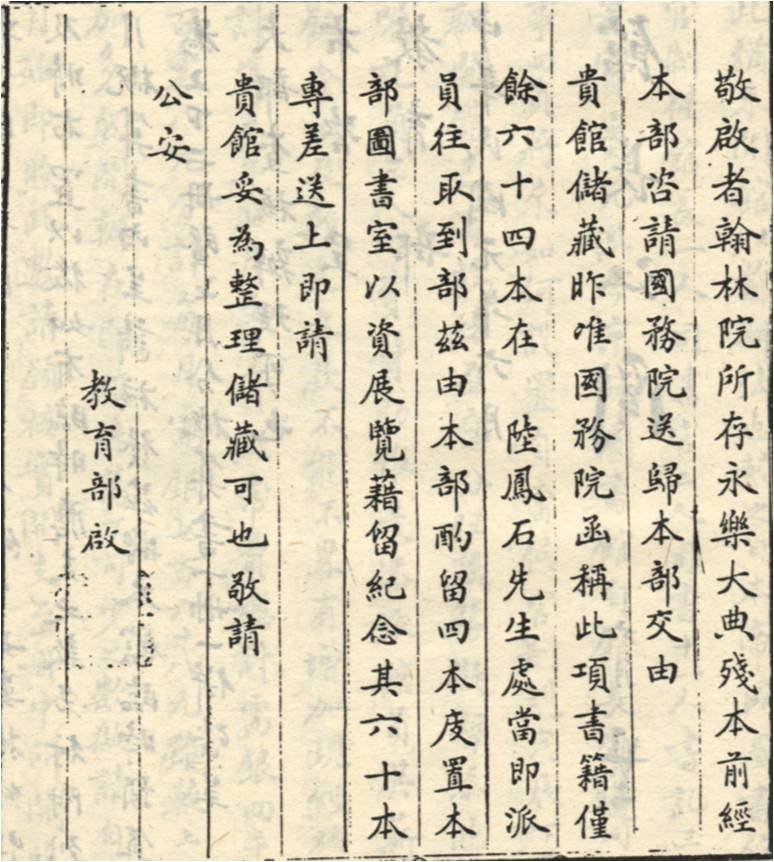 敬啟者翰林院所存永樂大典殘本前經
本部咨請國務院送歸本部交由
貴館儲藏昨准國務院函稱此項書籍僅
餘六十四本在　陸鳳石先生處當即派
員往取到部茲由本部酌留四本庋置本
部圖書室以資展覽藉留紀念其六十本
專差送上即請
貴館妥為整理儲藏可也敬請
公安
教育部啟